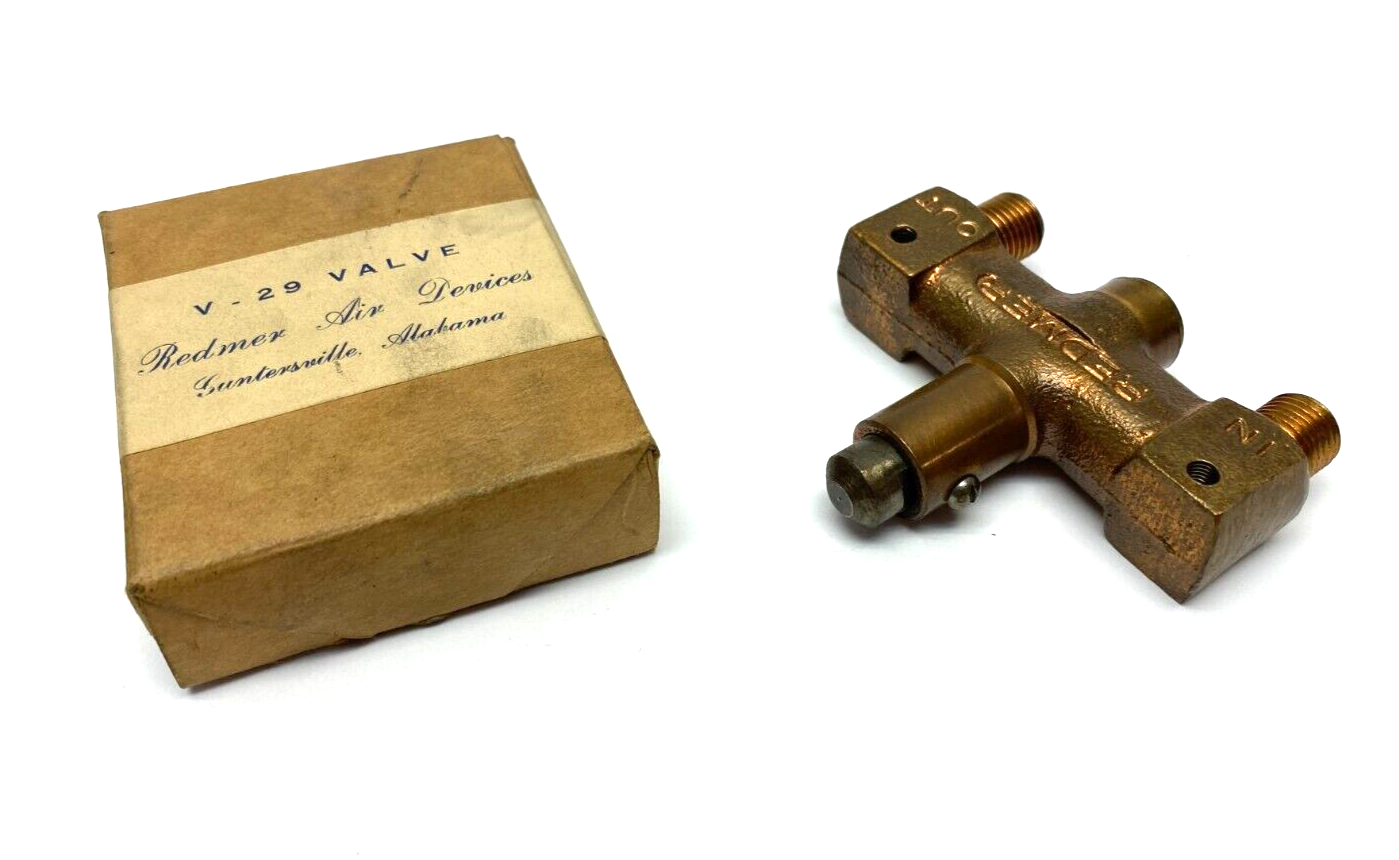 V - 29 VALVE
Redmer Air Devices
Guntersville, Alabama
OUT
REDMER
IN